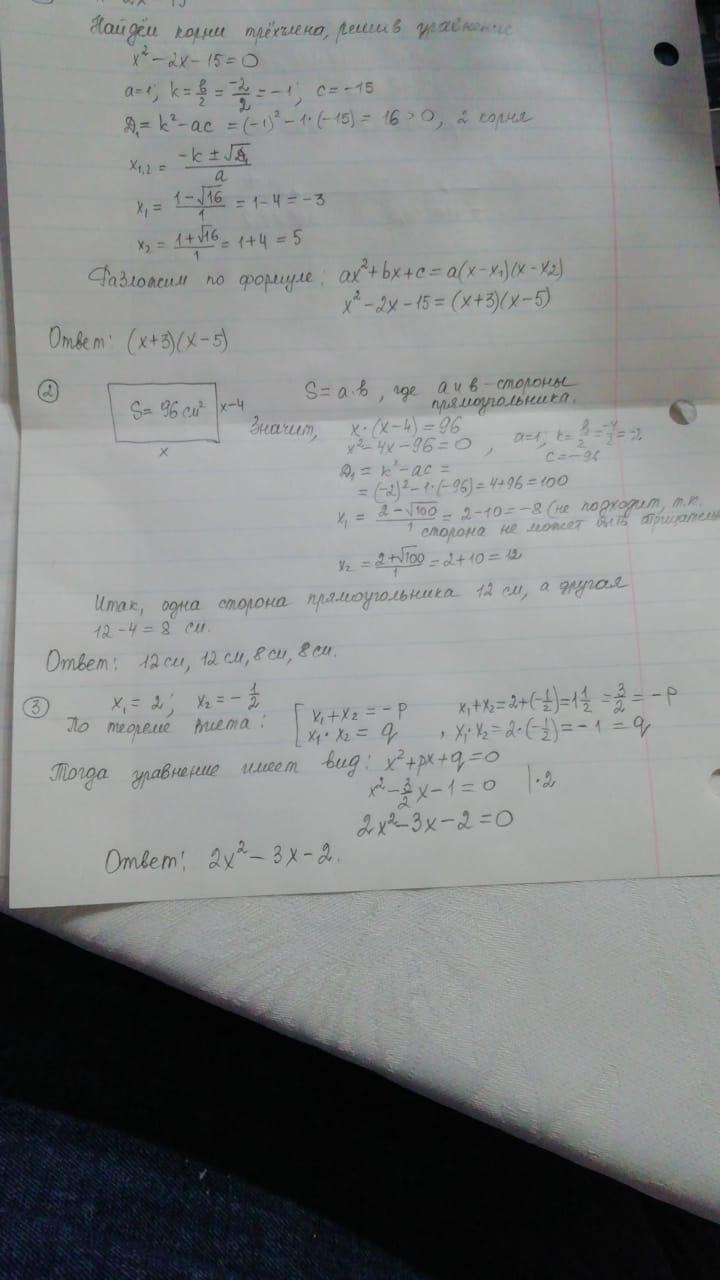 Найдём корни трёхчлена, решив уравнение
x² − 2x − 15 = 0
a=1; k = b/2 = −2/2 = −1; c = −15
D₁ = k² − ac = (−1)² − 1·(−15) = 16 > 0, 2 корня
x₁,₂ = (−k ± √D₁)/a
x₁ = (1−√16)/1 = 1−4 = −3
x₂ = (1+√16)/1 = 1+4 = 5
Разложим по формуле: ax²+bx+c = a(x−x₁)(x−x₂)
x²−2x−15 = (x+3)(x−5)
Ответ: (x+3)(x−5)
② S = 96 см² x−4 x
S = a·b, где a и b - стороны
прямоугольника.
Значит, x·(x−4) = 96
x²−4x−96 = 0, a=1; k = b/2 = −4/2 = −2
c = −96
D₁ = k²−ac =
= (−2)²−1·(−96) = 4+96 = 100
x₁ = (2−√100)/1 = 2−10 = −8 (не подходит, т.к.
сторона не может быть
x₂ = (2+√100)/1 = 2+10 = 12
Итак, одна сторона прямоугольника 12 см, а другая
12−4 = 8 см.
Ответ: 12 см, 12 см, 8 см, 8 см.
③ x₁ = 2; x₂ = −1/2
По теореме Виета: [ x₁+x₂ = −p x₁+x₂ = 2+(−1/2) = 1 1/2 = 3/2 = −p
x₁·x₂ = q, x₁·x₂ = 2·(−1/2) = −1 = q
Тогда уравнение имеет вид: x²+px+q=0
x² − 3/2 x − 1 = 0 |·2
2x²−3x−2 = 0
Ответ: 2x² − 3x − 2.